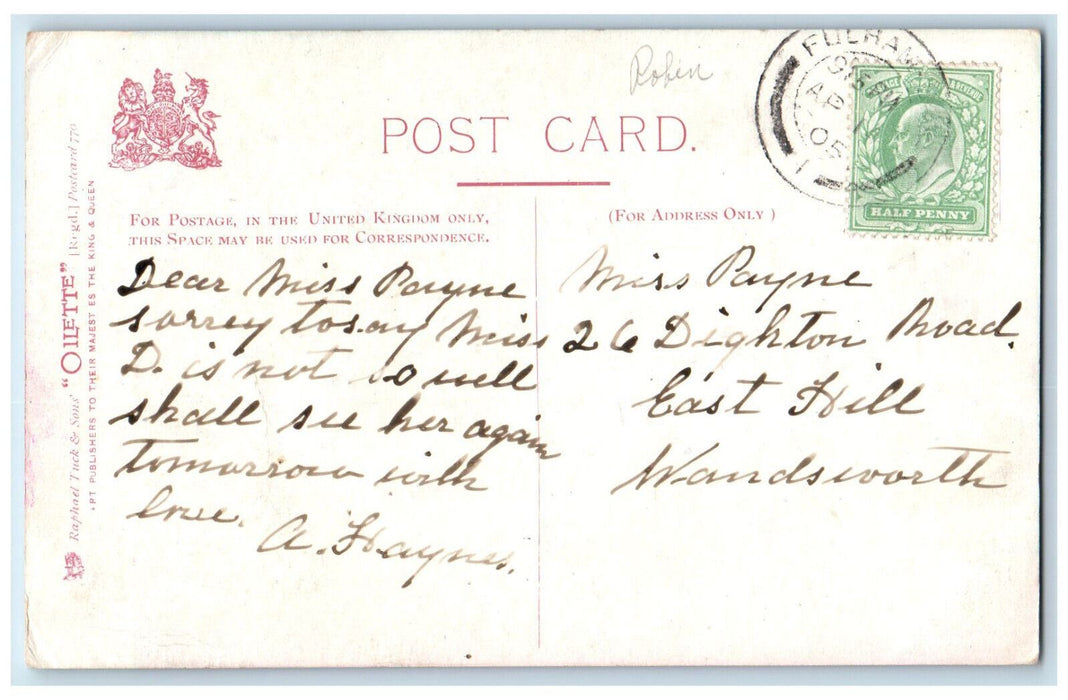 Robin
POST CARD.
FOR POSTAGE, IN THE UNITED KINGDOM ONLY,
THIS SPACE MAY BE USED FOR CORRESPONDENCE.
(FOR ADDRESS ONLY)
Dear Miss Payne
sorrey to say Miss
D. is not so well
shall see her again
tomorrow with
love.
A. Haynes.
Miss Payne
26 Dighton Road.
East Hill
Wandsworth
FULHAM
AP
05
1
POSTAGE & REVENUE
HALF PENNY
Raphael Tuck & Sons' "OILETTE" [Regd.] Postcard 770
ART PUBLISHERS TO THEIR MAJESTIES THE KING & QUEEN